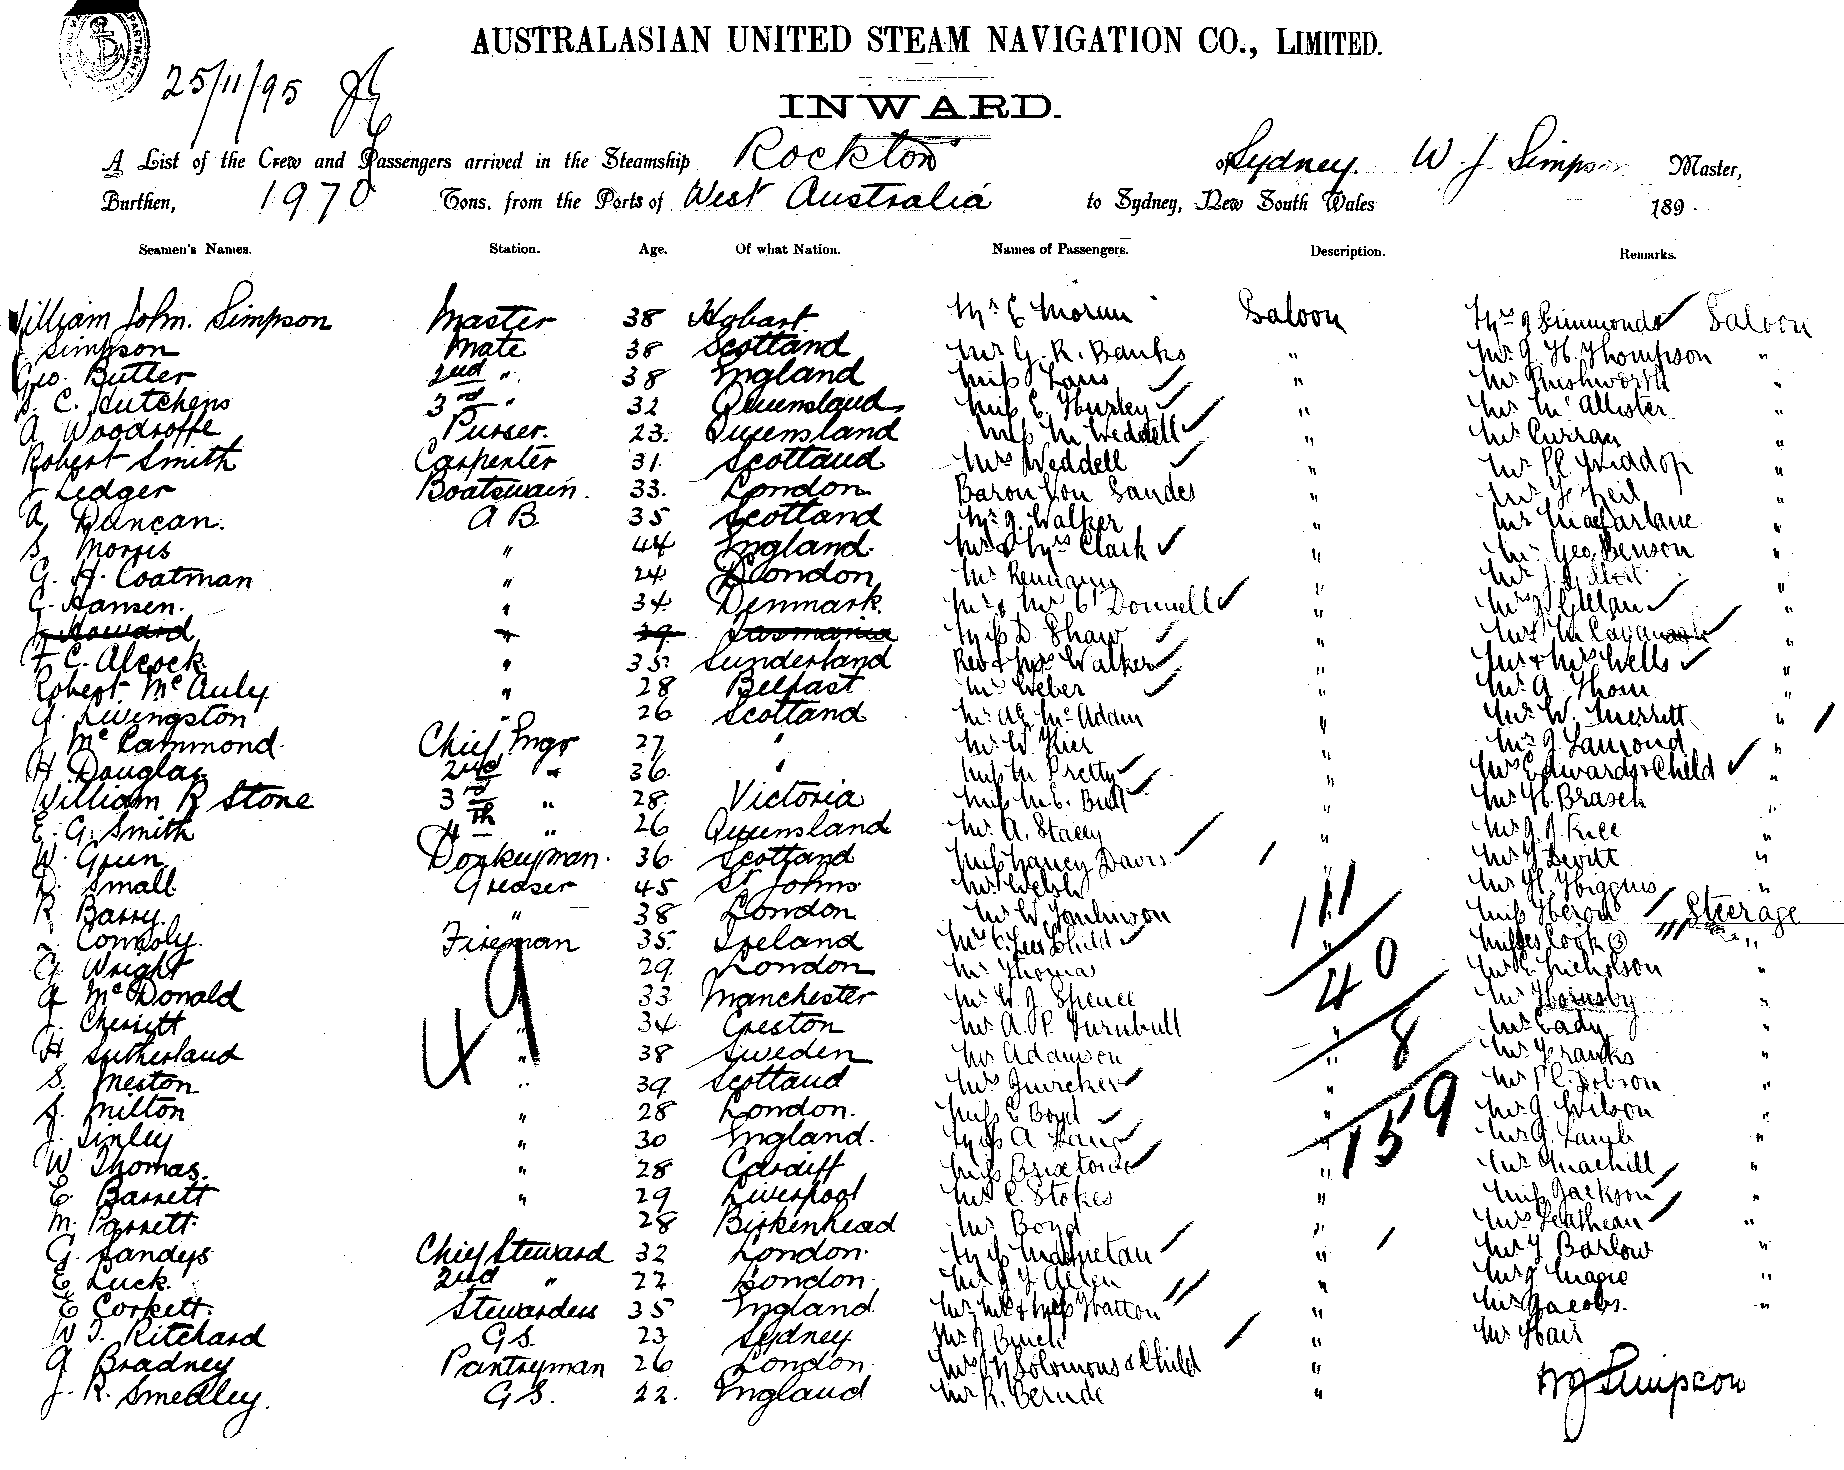 25/11/95
AUSTRALASIAN UNITED STEAM NAVIGATION CO., LIMITED.
INWARD.
A List of the Crew and Passengers arrived in the Steamship Rockton of Sydney. W J Simpson Master,
Burthen, 1970 Tons. from the Ports of West Australia to Sydney, New South Wales 189
Seamen's Names. Station. Age. Of what Nation. Names of Passengers. Description. Remarks.
William John. Simpson Master 38 Hobart Mr E Moran Saloon Mrs J Simmonds Saloon
Simpson Mate 38 Scotland Mr G. R. Banks " Mr J. H. Thompson "
Geo. Butler 2nd " 38 England Miss " Mr Rushworth "
C. Hutchens 3rd " 32 Queensland Miss E. Hurley " Mr McAllister "
A Woodroffe Purser. 23. Queensland Miss M Weddell " Mr Curran "
Robert Smith Carpenter 31 Scotland Mrs Weddell " Mr "
J Ledger Boatswain. 33. London Baron Von Sandes " Mr J Neil "
A Duncan. A B. 35 Scotland Mr J. Walker " Mr Macfarlane "
S. Morris " 44 England. Mr & Mrs Clark " Mr Geo. Benson "
G. H. Coatman " 24 London Mr " Mr J. Gilbert "
C. Hansen. " 34 Denmark. Mr & Mrs O'Donnell " Mrs "
J Howard " 29 Tasmania Miss D. Shaw " M "
F C. Alcock. " 35 Sunderland Rev & Mrs Walker " Mr & Mrs Wells "
Robert McAuly " 28 Belfast Mr Weber " Mr A Thom "
J. Livingston " 26 Scotland Mr McAdam " Mr W. Merritt "
J McCammond. Chief Engr 27 " Mr W. " Mr J Lamond "
H. Douglas 2nd " 36 " Miss M Pretty " Mrs Edwards & Child "
William R Stone 3rd " 28 Victoria Miss M. E. Bull " Mr H. Brasch "
E. G. Smith 4th " 26 Queensland Mr A. Stacey " Mr J. J. Rice "
W. Green Donkeyman. 36 Scotland Miss Nancy Davis " Mr Devitt "
D. Small Greaser 45 St Johns Mr Welsh 111 Mr H. Higgins "
R Barry. " 38 London Mr W. Tomlinson Miss Heron Steerage
Connoly. Fireman 35. Ireland Mrs & Child " Misses Cook (3) "
G Wright 29 London Mr Thomas 40 Mr E. Nicholson "
A McDonald 49 33 Manchester Mr W. J. Spence Mr Hornsby "
J. Cherritt " 34 Creston Mr A. P. Turnbull " 8 Mr Eady "
H Sutherland " 38 Sweden Mr Adamson " Mr Franks "
S. Meston " 39 Scotland Mrs " Mr Dobson "
J. Milton " 28 London. Miss E Boyd " 159 Mr J. Wilson "
J. Tinley " 30 England. Miss A Lang Mr J. Lamb "
W Thomas. " 28 Cardiff Miss Brixtowe " Mr Machill "
E. Barrett " 29 Liverpool Mr C. Stokes " Miss Jackson "
M. Parrett. 28 Birkenhead Mr Boyd " Mrs "
G. Sandeys Chief Steward 32 London. Miss " Mr Barlow "
E Luck. 2nd " 22 London. Mr J. Y. Allen " Mr J Magie "
E Corkett. Stewardess 35 England Mr, Mrs & Miss Hatton " Mr Jacobs. "
W J. Ritchard G S. 23 Sydney Mr " Mr Hair
G Bradney Pantryman 26 London Mrs Solomons & Child "
J. R. Smedley. G S. 22. England Mr R. " W J Simpson